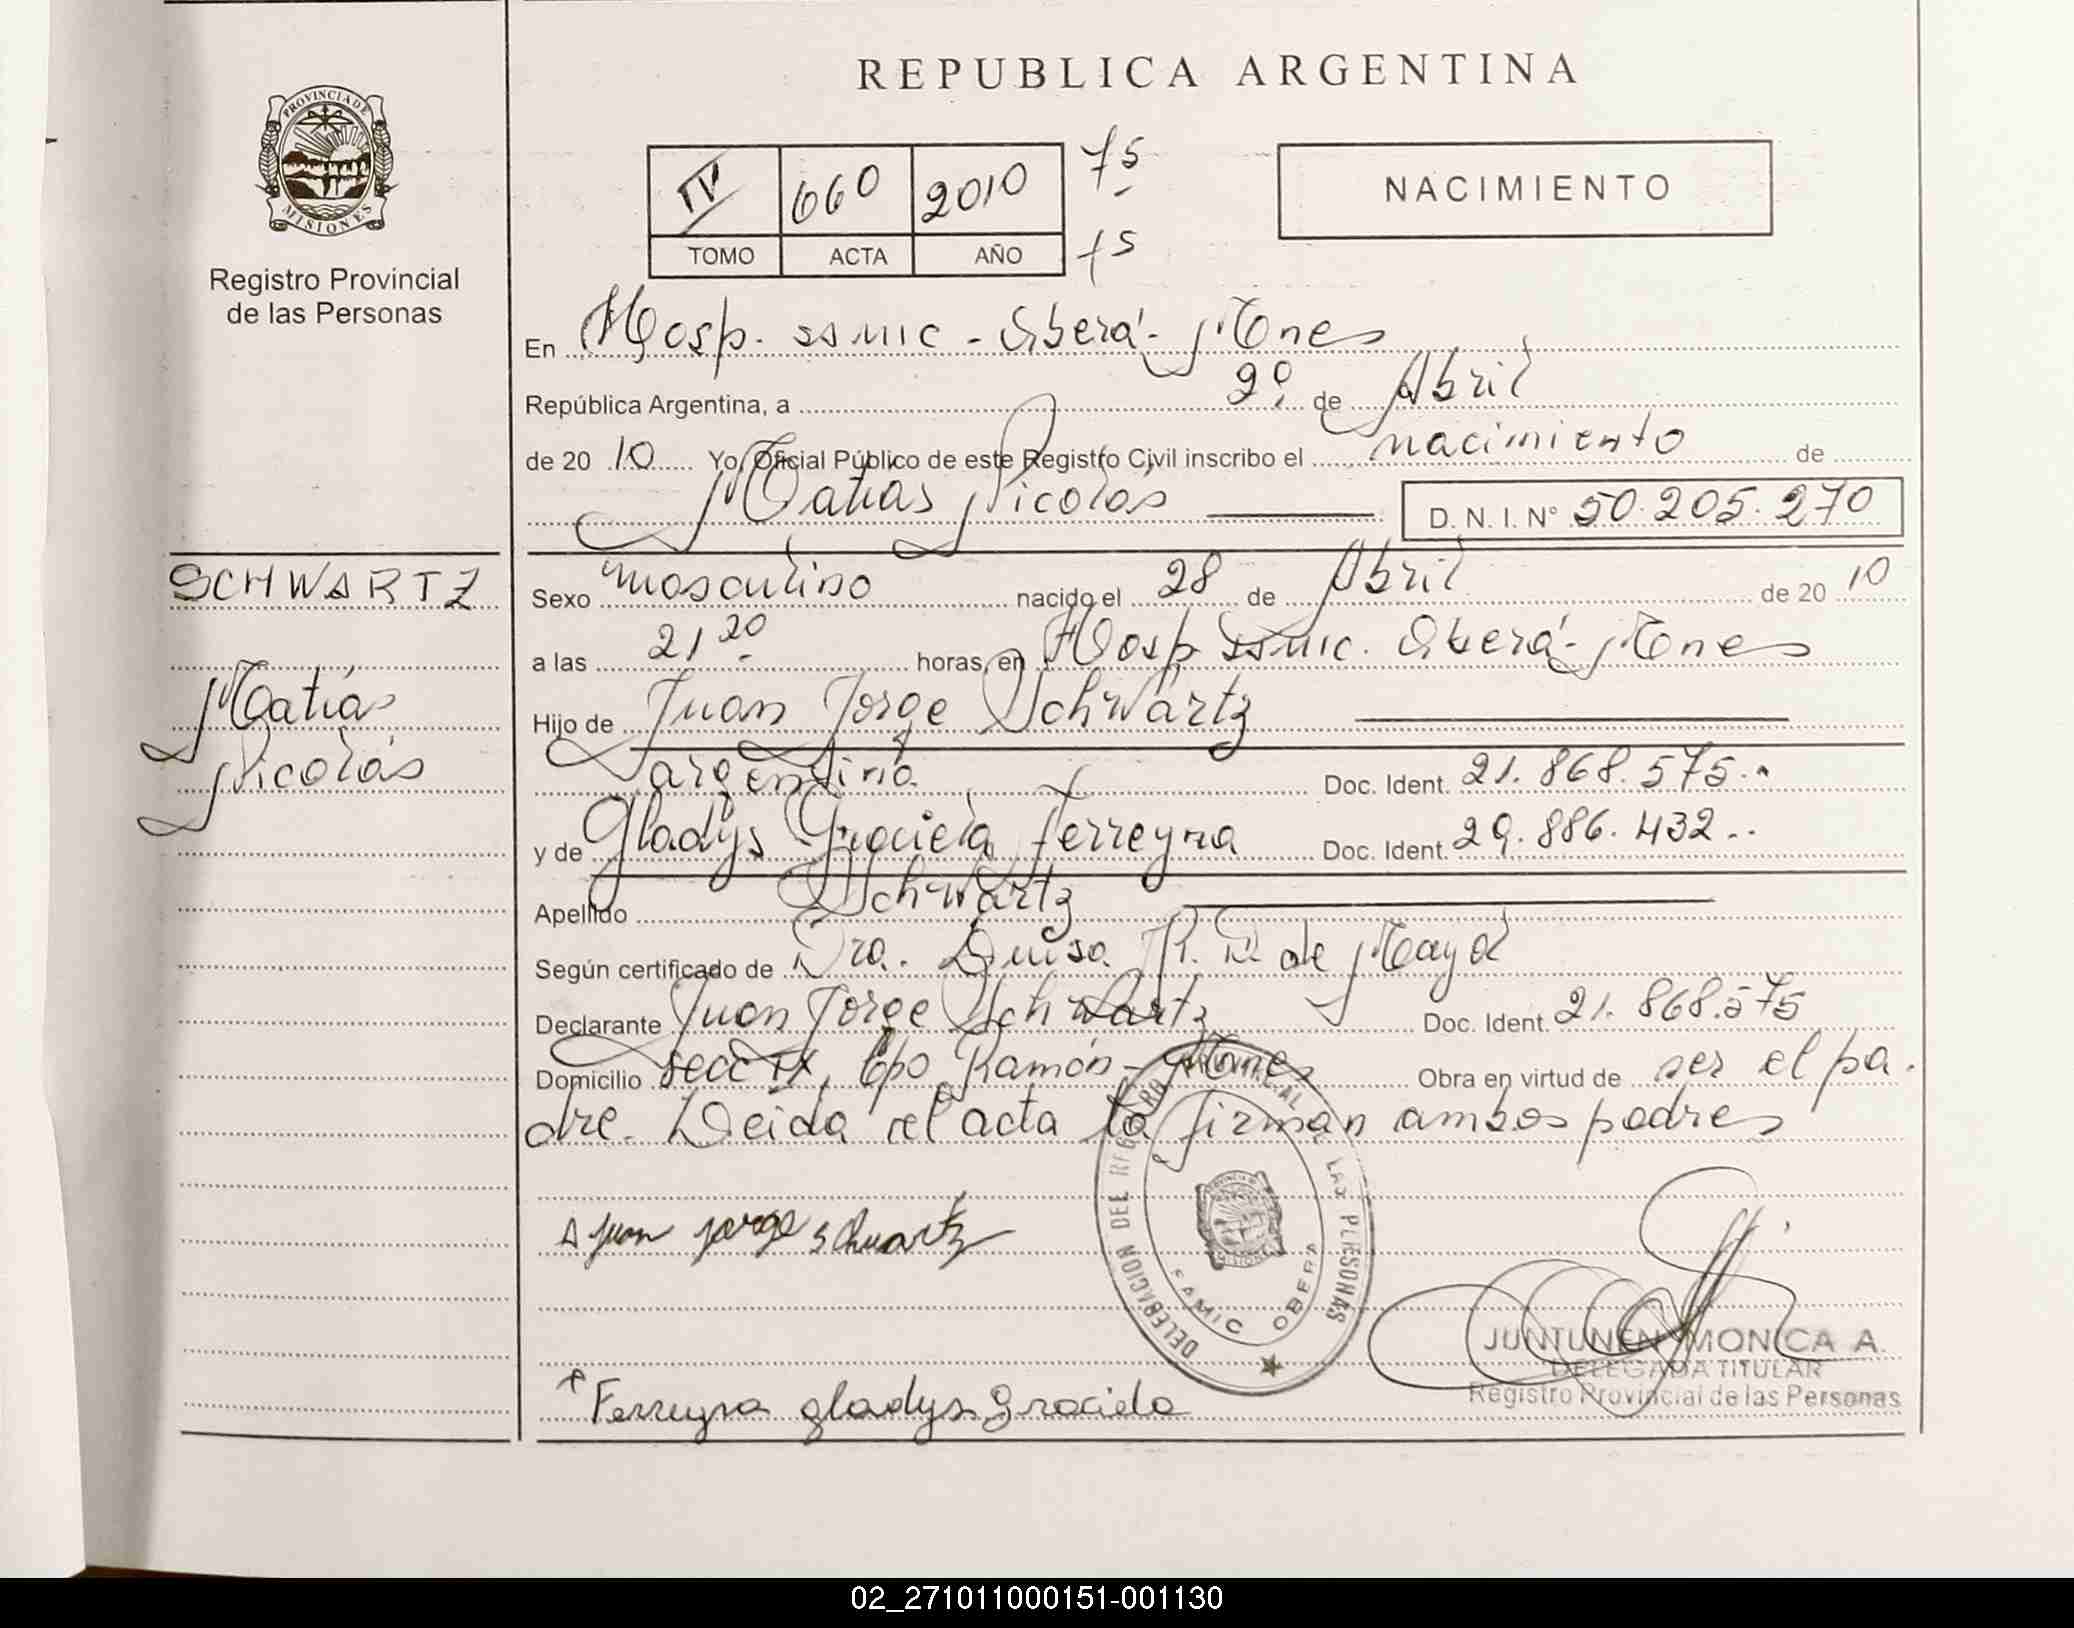 PROVINCIA DE
MISIONES
Registro Provincial
de las Personas
SCHWARTZ
Matías
Nicolás
REPUBLICA ARGENTINA
IV 660 2010 75
TOMO ACTA AÑO 75
NACIMIENTO
En Hosp. SAMIC - Oberá - Mones
República Argentina, a 29 de Abril
de 20 10 Yo, Oficial Público de este Registro Civil inscribo el nacimiento de
Matías Nicolás D. N. I. N° 50.205.270
Sexo masculino nacido el 28 de Abril de 20 10
a las 21 20 horas, en Hosp SAMIC. Oberá - Mones
Hijo de Juan Jorge Schwartz
argentino Doc. Ident. 21.868.575.
y de Gladys Graciela Ferreyra Doc. Ident. 29.886.432..
Apellido Schwartz
Según certificado de Dra. Luisa R. D. de Maya
Declarante Juan Jorge Schwartz Doc. Ident. 21.868.575
Domicilio secc IX, Cpo Ramón - Mones Obra en virtud de ser el pa.
dre. Leida el acta la firman ambos padres
Juan jorge schwartz
DELEGACION DEL REGISTRO PROVINCIAL DE LAS PERSONAS
SAMIC OBERA
JUNTUNEN MONICA A.
DELEGADA TITULAR
Registro Provincial de las Personas
Ferreyra gladys graciela
02_271011000151-001130